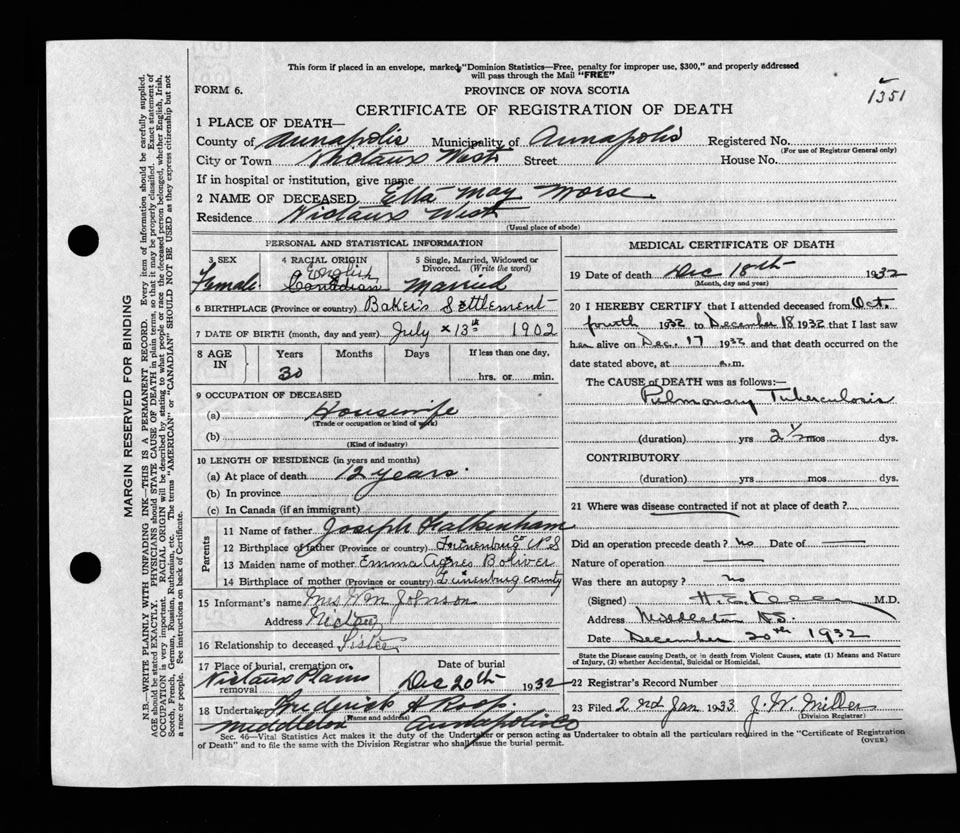 This form if placed in an envelope, marked "Dominion Statistics—Free, penalty for improper use, $300," and properly addressed
will pass through the Mail "FREE"
FORM 6.
PROVINCE OF NOVA SCOTIA
1351
CERTIFICATE OF REGISTRATION OF DEATH
1 PLACE OF DEATH—
County of Annapolis Municipality of Annapolis Registered No.
(For use of Registrar General only)
City or Town Nictaux West Street House No.
If in hospital or institution, give name
2 NAME OF DECEASED Ella May Morse
Residence Nictaux West
(Usual place of abode)
PERSONAL AND STATISTICAL INFORMATION
3 SEX 4 RACIAL ORIGIN 5 Single, Married, Widowed or
Divorced. (Write the word)
English
Female Canadian Married
6 BIRTHPLACE (Province or country) Baker's Settlement
7 DATE OF BIRTH (month, day and year) July 13th 1902
8 AGE IN Years Months Days If less than one day,
30 hrs. or min.
9 OCCUPATION OF DECEASED
(a) Housewife
(Trade or occupation or kind of work)
(b)
(Kind of industry)
10 LENGTH OF RESIDENCE (in years and months)
(a) At place of death 12 years.
(b) In province
(c) In Canada (if an immigrant)
Parents
11 Name of father Joseph Falkenham
12 Birthplace of father (Province or country) Lunenburg Co N.S
13 Maiden name of mother Emma Agnes Boliver
14 Birthplace of mother (Province or country) Lunenburg county
15 Informant's name Mrs Wm Johnson
Address Nictaux
16 Relationship to deceased Sister
17 Place of burial, cremation or removal Date of burial
Nictaux Plains Dec 20th 1932
18 Undertaker Fredrick J Roop.
(Name and address)
Middleton Annapolis Co
MEDICAL CERTIFICATE OF DEATH
19 Date of death Dec 18th 1932
(Month, day and year)
20 I HEREBY CERTIFY that I attended deceased from Oct.
fourth 1932 to December 18 1932 that I last saw
her alive on Dec. 17 1932 and that death occurred on the
date stated above, at a.m.
The CAUSE of DEATH was as follows:—
Pulmonary Tuberculosis
(duration) yrs 2 1/2 mos dys.
CONTRIBUTORY
(duration) yrs mos dys.
21 Where was disease contracted if not at place of death?
Did an operation precede death? no Date of
Nature of operation
Was there an autopsy? no
(Signed) M.D.
Address Middleton N.S.
Date December 20th 1932
State the Disease causing Death, or in death from Violent Causes, state (1) Means and
Nature of Injury, (2) whether Accidental, Suicidal or Homicidal.
22 Registrar's Record Number
23 Filed 2nd Jan 1933 J. W. Miller
(Division Registrar)
Sec. 46—Vital Statistics Act makes it the duty of the Undertaker or person acting as Undertaker to obtain all the particulars required in the "Certificate of Registration
of Death" and to file the same with the Division Registrar who shall issue the burial permit.
(OVER)
MARGIN RESERVED FOR BINDING
N.B.—WRITE PLAINLY WITH UNFADING INK—THIS IS A PERMANENT RECORD. Every item of information should be carefully supplied.
AGE should be stated EXACTLY. PHYSICIANS should STATE CAUSE OF DEATH in plain terms, so that it may be properly classified. Exact statement of
OCCUPATION is very important. RACIAL ORIGIN will be described by stating to what people or race the deceased person belonged, whether English, Irish,
Scotch, French, German, Russian, Ruthenian, etc. The terms "AMERICAN" or "CANADIAN" SHOULD NOT BE USED as they express citizenship but not
a race or people. See instructions on back of Certificate.